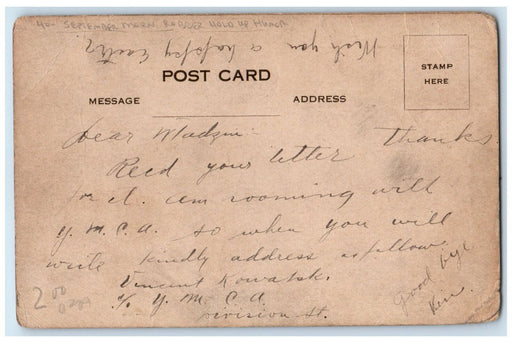 40- SEPTEMBER MORN, ROBBER HOLD UP HUMOR
Wish you a happy Easter
POST CARD
STAMP
HERE
MESSAGE
ADDRESS
Dear
thanks
Recd your letter
for it. am rooming will
Y. M. C. A. so when you will
write kindly address as follow
Vincent
c/o Y. M. C. A.
Division St.
Good bye
2 00